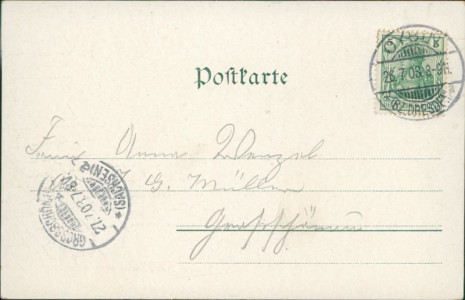 Postkarte
OYBIN
26.7.03.8-9V.
(BZ.DRESDEN)
Anna Wenzel
G. Müller
Großschönau
GROSSSCHÖNAU
(SACHSEN)
27.7.03.7-8V.